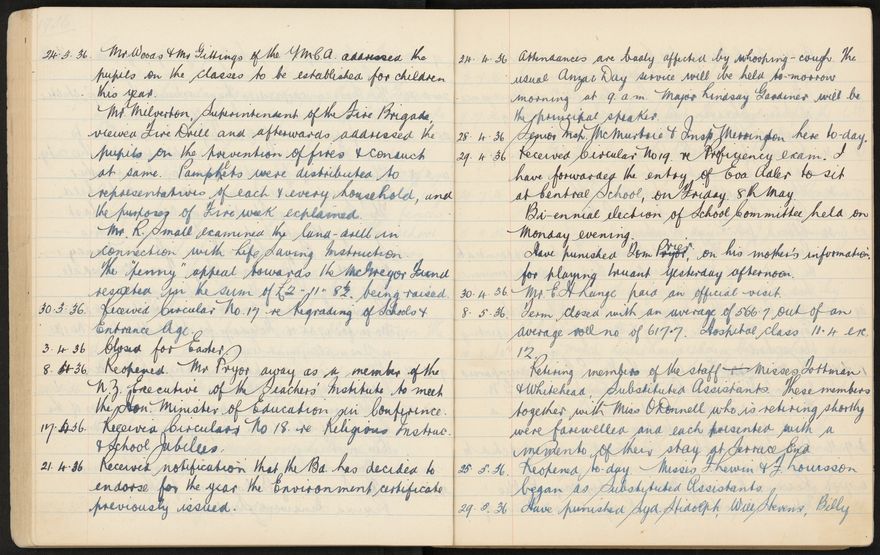 24.3.36 Mr Woods & Mr Gittings of the Y.M.C.A. addressed the
pupils on the classes to be established for children
this year.
Mr Milverton, Superintendent of the Fire Brigade,
viewed Fire Drill and afterwards addressed the
pupils on the prevention of fires & conduct
at same. Pamphlets were distributed to
representatives of each & every household, and
the purposes of Fire week explained.
Mr. R. Small examined the land-drill in
connection with Life Saving Instruction.
The "penny" appeal towards the McGregor Fund
resulted in the sum of £2-11-8½ being raised.
30.3.36. Received Circular No. 17 re Regrading of Schools &
Entrance Age.
3.4.36 Closed for Easter
8.4.36 Reopened. Mr Pryor away as a member of the
N.Z. Executive of the Teachers' Institute to meet
the Hon. Minister of Education in Conference.
17.4.36. Received Circulars No 18 re Religious Instruc.
& School Jubilees.
21.4.36 Received notification that the Bd. has decided to
endorse for the year the Environment certificate
previously issued.
24.4.36 Attendances are badly affected by whooping-cough. The
usual Anzac Day service will be held to-morrow
morning at 9 a.m. Major Lindsay Gardiner will be
the principal speaker.
28.4.36 Senior Insp. McMurtrie & Insp. Merrington here to-day.
29.4.36 Received Circular No 19. re Proficiency exam. I
have forwarded the entry of Eva Adler to sit
at Central School, on Friday, 8th May
Bi-ennial election of School Committee held on
Monday evening.
Have punished Tom Prier, on his mother's information,
for playing truant yesterday afternoon.
30.4.36 Mr. E.H. Lange paid an official visit.
8.5.36 Term closed with an average of 566.7 out of an
average roll no of 617.7. Hospital class 11.4 ex
12.
Retiring members of the staff Misses Tottman
& Whitehead, Substituted Assistants. These members
together with Miss O'Donnell who is retiring shortly
were farewelled and each presented with a
memento of their stay at Terrace End
25.5.36 Reopened to-day. Misses Thewin & F. Louisson
began as Substituted Assistants.
29.5.36 Have punished Syd. Hidolph, Will Stevens, Billy